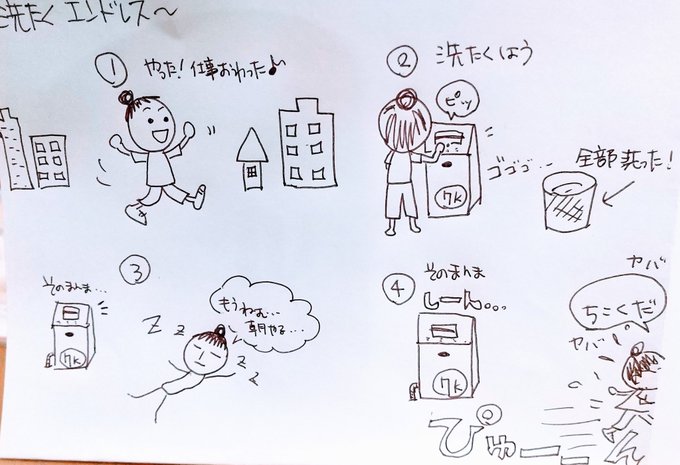 洗たくエンドレス〜
①
やった!仕事おわった♪
②
洗たくしよう
ピッ
ゴゴゴ...
全部洗った!
7K
③
そのまんま...
7K
Z z
z
z
もうねむ...
朝やる...
④
そのまんま
しーん。。。
7K
ヤバ
ちこくだ
ヤバ
ぴゅーーん